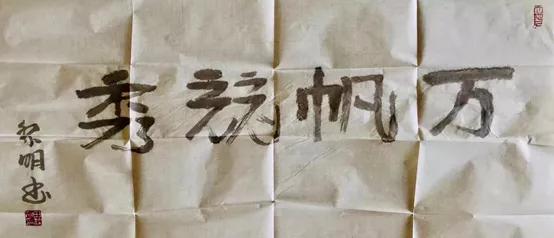 万帆竞秀
黎明书